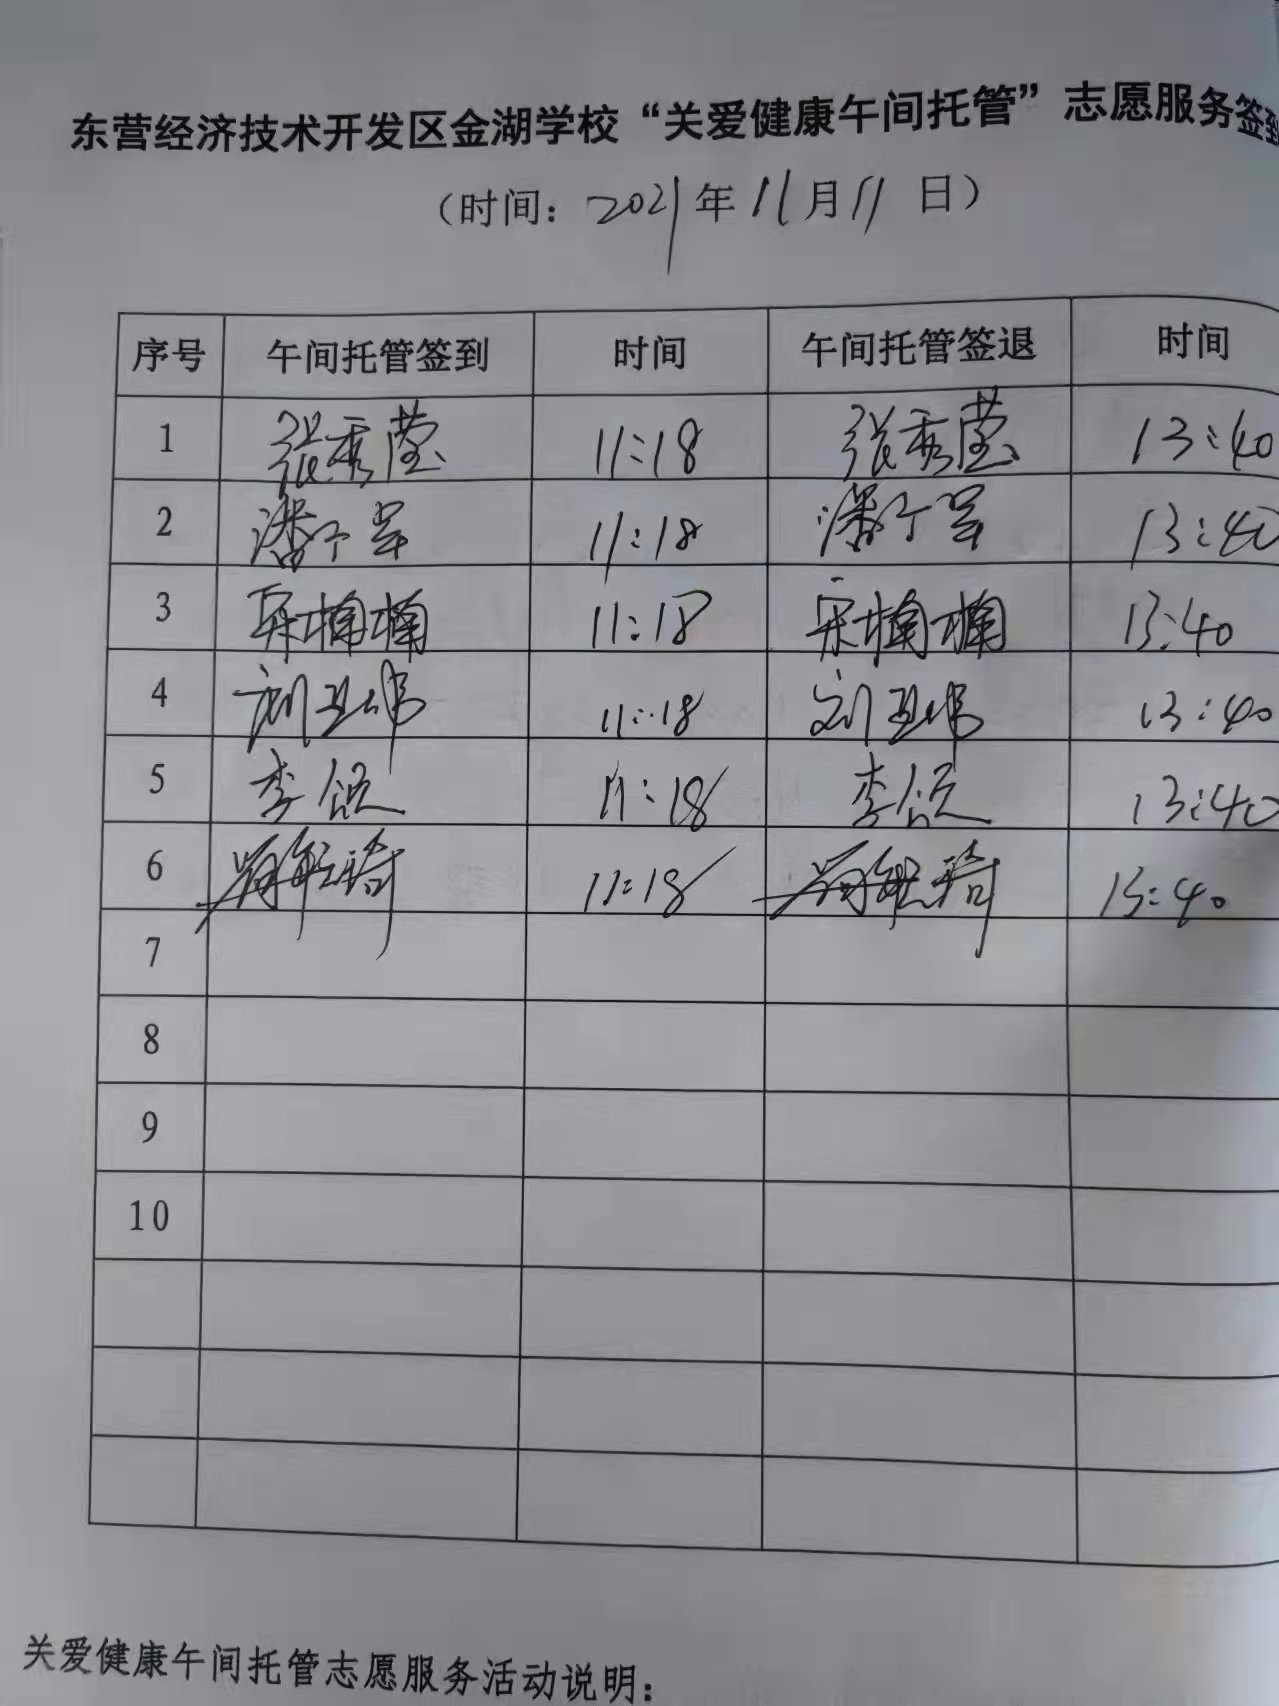 东营经济技术开发区金湖学校“关爱健康午间托管”志愿服务签到
（时间：2021年11月11日）
序号 午间托管签到 时间 午间托管签退 时间
1 张秀莹 11:18 张秀莹 13:40
2 潘 11:18 潘 13:40
3 宋楠楠 11:18 宋楠楠 13:40
4 刘卫伟 11:18 刘卫伟 13:40
5 李颂 11:18 李颂 13:40
6 11:18 13:40
7
8
9
10
关爱健康午间托管志愿服务活动说明：